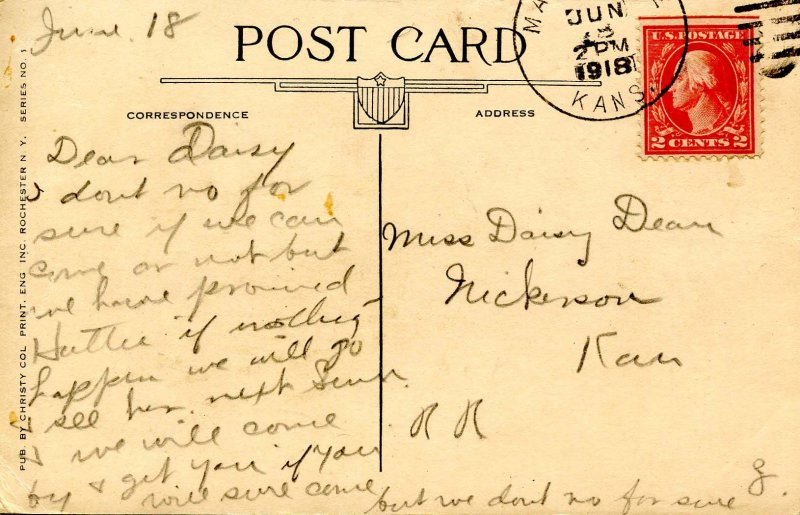 June 18
POST CARD
CORRESPONDENCE
ADDRESS
PUB. BY CHRISTY COL. PRINT. ENG INC. ROCHESTER N.Y. SERIES NO. 1
JUN
2 PM
1918
KANS.
U.S. POSTAGE
2 CENTS 2
Dear Daisy
I dont no for
sure if we can
come or not but
we have promised
Hattie if nothing
happen we will go
& see her next Sun.
& we will come
by & get you if you
will sure come but we dont no for sure
Miss Daisy Dean
Nickerson
Kan
R R